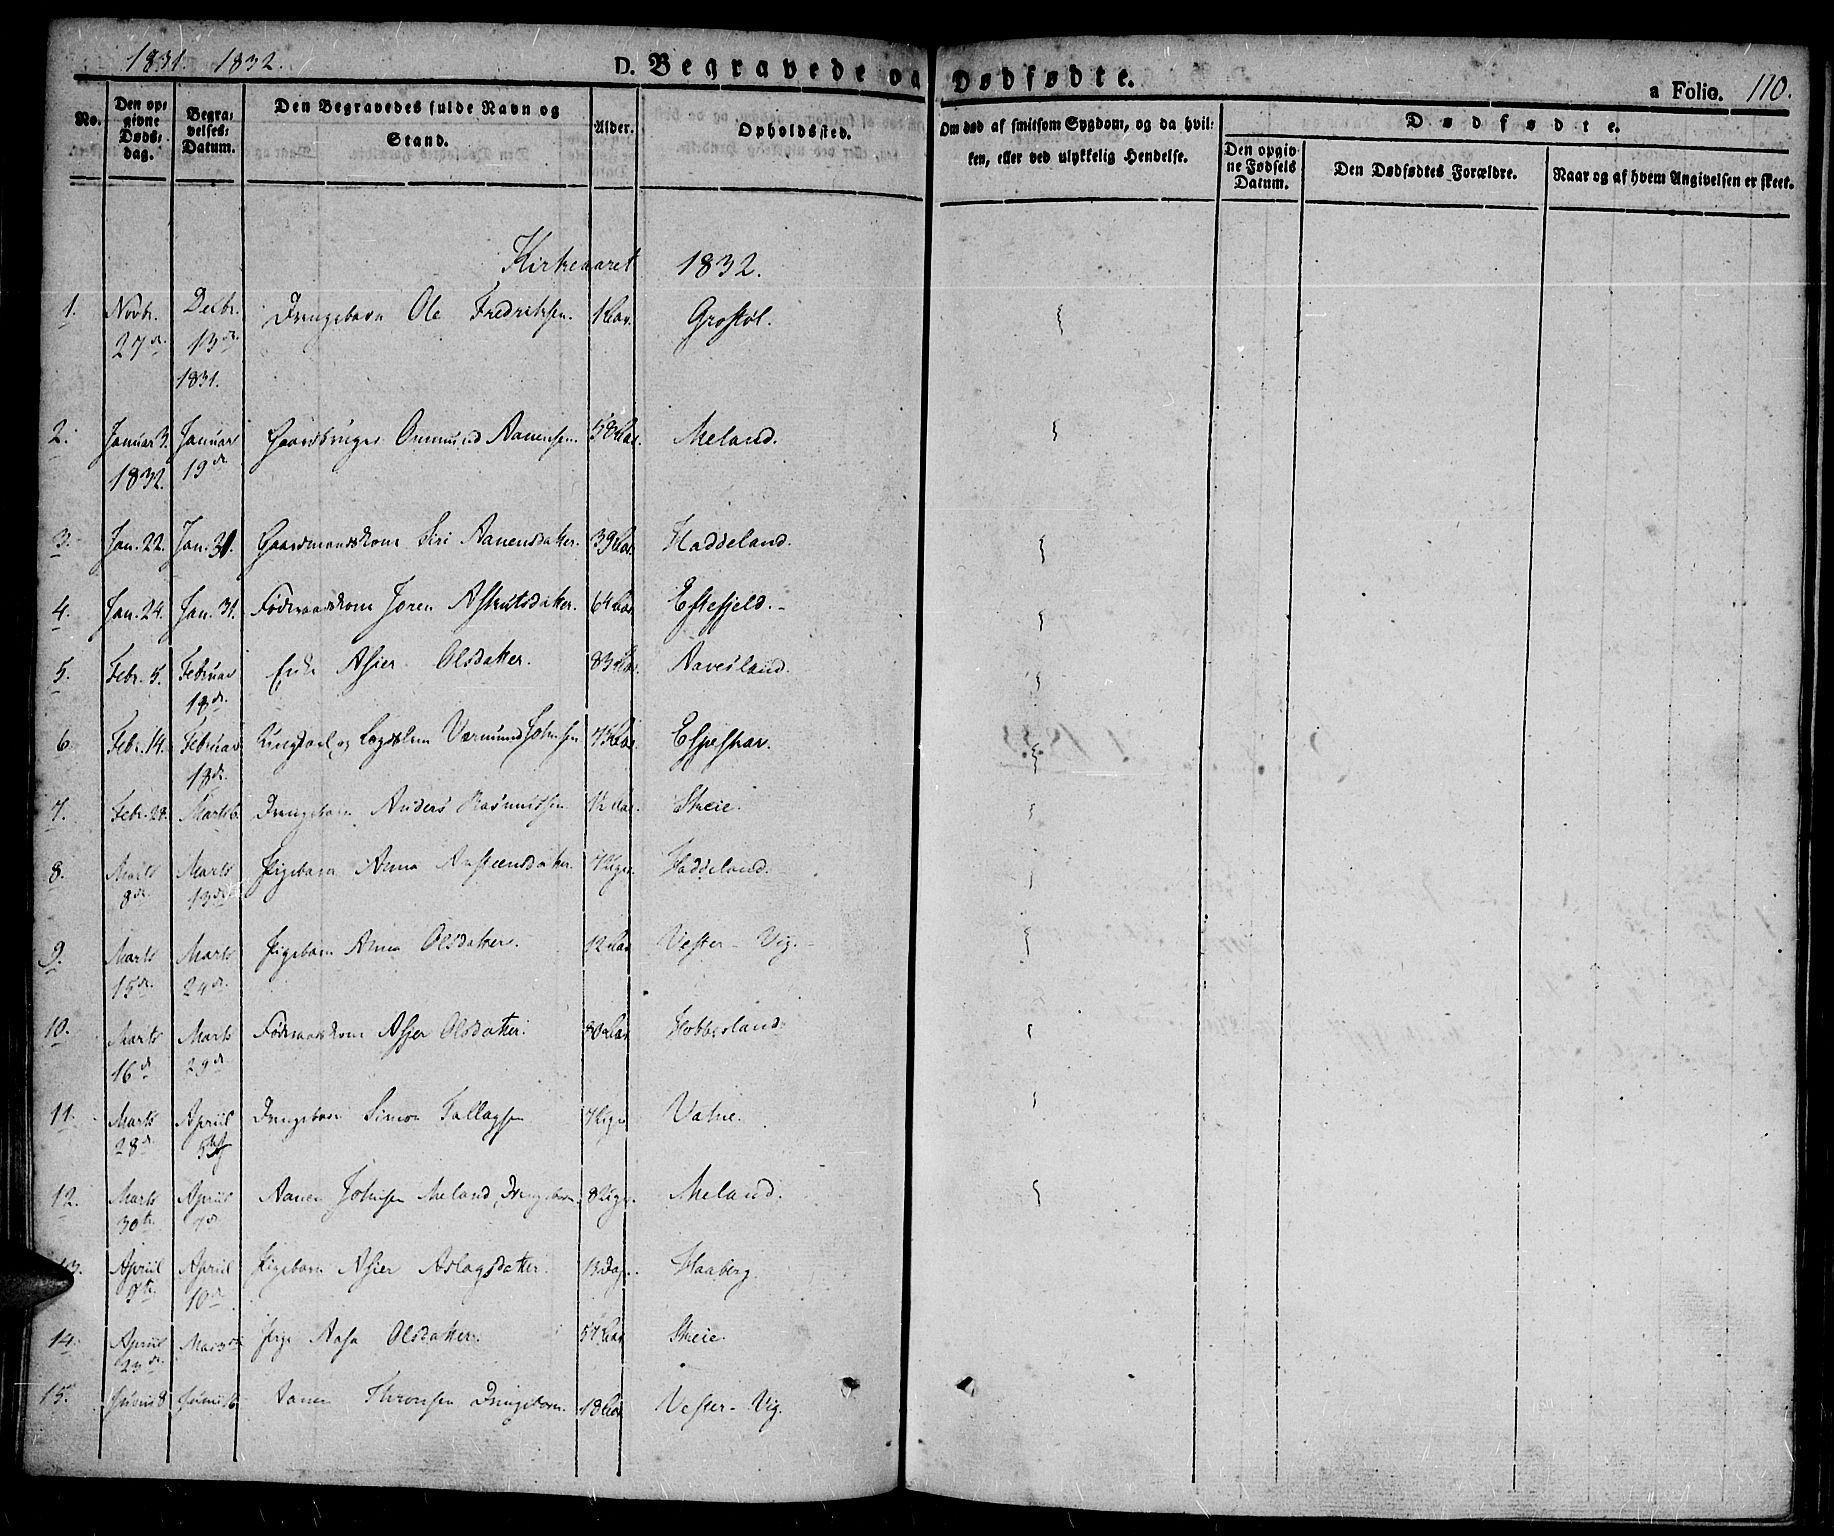 1831. 1832. D. Begravede og Dødfødte. a Folio. 110.
No. Den opgivne Dødsdag. Begravelses-Datum. Den Begravedes fulde Navn og Stand. Alder. Opholdssted. Om død af smitsom Sygdom, og da hvilken, eller ved ulykkelig Hendelse. Dødfødte.
Den opgivne Fødsels Datum. Den Dødfødtes Forældre. Naar og af hvem Angivelsen er skeet.
Kirkeaaret 1832.
1. Novbr. 27de Decbr. 13de 1831. Drengebarn Ole Fredriksen. 1 Aar. Grostøl.
2. Januar 3. 1832. Januar 19de Gaardbruger Ommund Aanensen. 58 Aar. Meland.
3. Jan. 22. Jan. 31. Gaardmandskone Siri Aanensdatter. 39 Aar. Haddeland.
4. Jan. 24. Jan. 31. Føderaadskone Joren Asknutsdatter. 64 Aar. Eftefjeld.
5. Febr. 5. Februar 18de Enke Asier Olsdatter. 83 Aar. Aavesland.
6. Febr. 14. Februar 18de Ungkarl og Lægdslem Værmund Johnsen Aar. Espeskar.
7. Febr. Marts 6. Drengebarn Anders Rasmussen Aar. Skeie.
8. Marts 8de Marts 13de Pigebarn Anna Aasteensdatter. 7 Uger. Haddeland.
9. Marts 15de Marts 24de Pigebarn Anna Olsdatter. 12 Aar Vester-Vig.
10. Marts 16de Marts 29de Føderaadskone Asjer Olsdatter. 80 Aar Hobbesland.
11. Marts 28de April 5te Drengebarn Simon Tallagsen 7 Uger Vatne.
12. Marts 30te April Aanen Johnsen Meland, Drengebarn. 8 Uger. Meland.
13. April 9te April 10de Pigebarn Asier Aslagsdatter. 13 Dage. Haaberg.
14. April 23de Mai 3de Pige Aasa Olsdatter. 57 Aar Skeie.
15. Junius 8 Junius 16 Aanen Thronsen Drengebarn. 18 Aar. Vester-Vig.